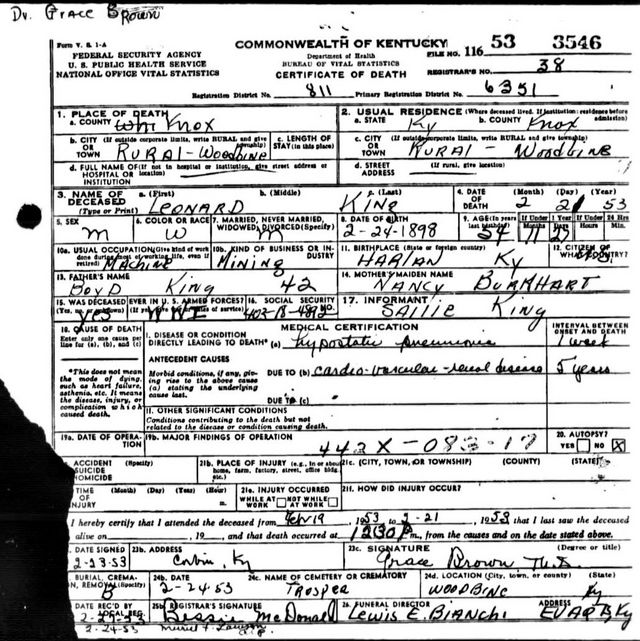 Dr. Grace Brown
Form V. S. 1-A
FEDERAL SECURITY AGENCY
U. S. PUBLIC HEALTH SERVICE
NATIONAL OFFICE VITAL STATISTICS
COMMONWEALTH OF KENTUCKY
Department of Health
BUREAU OF VITAL STATISTICS
CERTIFICATE OF DEATH
FILE NO. 116 53 3546
REGISTRAR'S NO. 38
Registration District No. 811 Primary Registration District No. 6351
1. PLACE OF DEATH
a. COUNTY Knox
2. USUAL RESIDENCE (Where deceased lived. If institution: residence before admission)
a. STATE Ky b. COUNTY Knox
b. CITY (If outside corporate limits, write RURAL and give township) OR TOWN RURAL - Woodbine
c. LENGTH OF STAY (in this place)
c. CITY (If outside corporate limits, write RURAL and give township) OR TOWN RURAL Woodbine
d. FULL NAME OF (If not in hospital or institution, give street address or location) HOSPITAL OR INSTITUTION
d. STREET ADDRESS (If rural, give location)
3. NAME OF DECEASED (Type or Print) a. (First) LEONARD b. (Middle) c. (Last) KING
4. DATE OF DEATH (Month) (Day) (Year) 2 21 53
5. SEX M
6. COLOR OR RACE W
7. MARRIED, NEVER MARRIED, WIDOWED, DIVORCED (Specify) M
8. DATE OF BIRTH 2-24-1898
9. AGE (In years last birthday) 54 If Under 1 Year Months 11 Days 27 If Under 24 Hrs Hours Min.
10a. USUAL OCCUPATION (Give kind of work done during most of working life, even if retired) Machine
10b. KIND OF BUSINESS OR INDUSTRY MINING
11. BIRTHPLACE (State or foreign country) HARLAN Ky
12. CITIZEN OF WHAT COUNTRY?
13. FATHER'S NAME BOYD KING 42
14. MOTHER'S MAIDEN NAME NANCY BURKHART
15. WAS DECEASED EVER IN U. S. ARMED FORCES? YES WWI
16. SOCIAL SECURITY NO. 402-18-4892
17. INFORMANT SALLIE KING
18. CAUSE OF DEATH
Enter only one cause per line for (a), (b), and (c)
MEDICAL CERTIFICATION
INTERVAL BETWEEN ONSET AND DEATH
I. DISEASE OR CONDITION DIRECTLY LEADING TO DEATH* (a) hypostatic pneumonia 1 week
*This does not mean the mode of dying, such as heart failure, asthenia, etc. It means the disease, injury, or complication which caused death.
ANTECEDENT CAUSES
Morbid conditions, if any, giving rise to the above cause (a) stating the underlying cause last.
DUE TO (b) cardio-vascular-renal disease 5 years
DUE TO (c)
II. OTHER SIGNIFICANT CONDITIONS
Conditions contributing to the death but not related to the disease or condition causing death.
19a. DATE OF OPERATION
19b. MAJOR FINDINGS OF OPERATION
442X-083-17
20. AUTOPSY? YES NO X
ACCIDENT (Specify) SUICIDE HOMICIDE
21b. PLACE OF INJURY (e.g., in or about home, farm, factory, street, office bldg., etc.)
21c. (CITY, TOWN, OR TOWNSHIP) (COUNTY) (STATE)
TIME OF INJURY (Month) (Day) (Year) (Hour) m.
21e. INJURY OCCURRED WHILE AT WORK NOT WHILE AT WORK
21f. HOW DID INJURY OCCUR?
I hereby certify that I attended the deceased from Feb 19, 1953 to 2-21, 1953 that I last saw the deceased
alive on , 19 , and that death occurred at 1230 P m., from the causes and on the date stated above.
DATE SIGNED 2-23-53
23b. ADDRESS Corbin, Ky
23c. SIGNATURE Grace Brown M.D. (Degree or title)
BURIAL, CREMATION, REMOVAL (Specify) B
24b. DATE 2-24-53
24c. NAME OF CEMETERY OR CREMATORY TROSPER
24d. LOCATION (City, town, or county) (State) WOODBINE Ky
DATE REC'D BY LOCAL REG. 2-24-53
25b. REGISTRAR'S SIGNATURE Bessie McDonald
26. FUNERAL DIRECTOR Lewis E. Bianchi
2-24-53